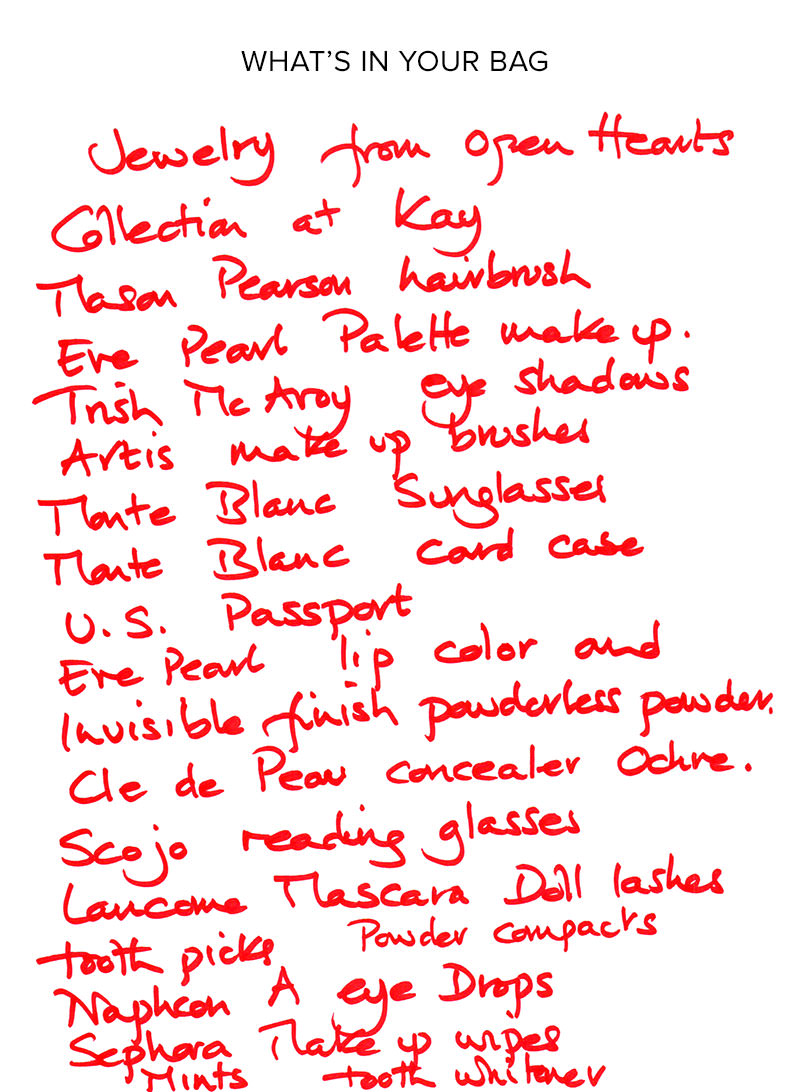 WHAT'S IN YOUR BAG
Jewelry from Open Hearts
Collection at Kay
Mason Pearson hairbrush
Eve Pearl Palette make up.
Trish McAvoy eye shadows
Artis make up brushes
Monte Blanc Sunglasses
Monte Blanc card case
U.S. Passport
Eve Pearl lip color and
Invisible finish powderless powder.
Cle de Peau concealer Ochre.
Scojo reading glasses
Lancome Mascara Doll lashes
tooth picks Powder compacts
Naphcon A eye Drops
Sephora Make up wipes
Mints tooth whitener